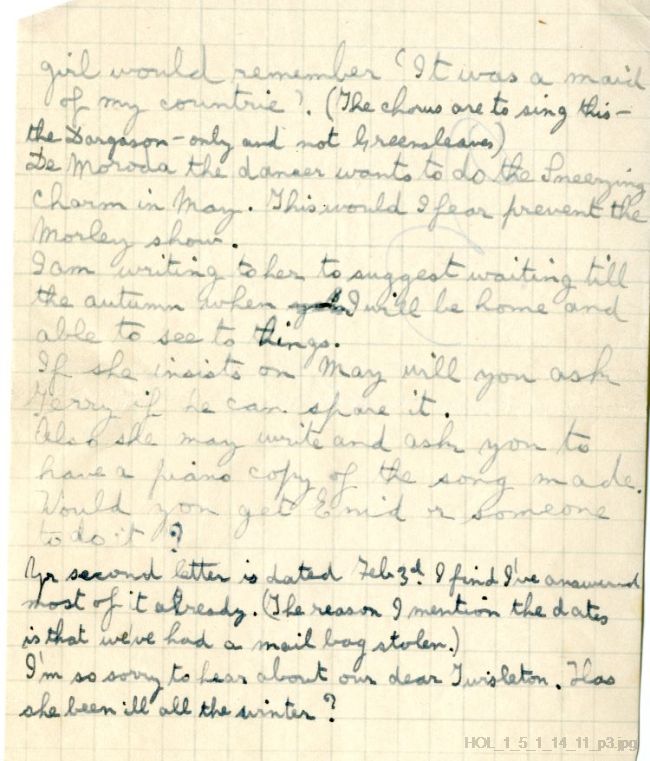 girl would remember 'It was a maid
of my countrie'. (The chorus are to sing this –
the Dargason – only and not Greensleaves)
De Moroda the dancer wants to do the Sneezing
charm in May. This would I fear prevent the
Morley show.
I am writing to her to suggest waiting till
the autumn when I will be home and
able to see to things.
If she insists on May will you ask
Gerry if he can spare it.
Also she may write and ask you to
have a piano copy of the song made.
Would you get Enid or someone
to do it?
Yr second letter is dated Feb 3d. I find I've answered
most of it already. (The reason I mention the dates
is that we've had a mail bag stolen.)
I'm so sorry to hear about our dear Twisleton. Has
she been ill all the winter?
HOL_1_5_1_14_11_p3.jpg